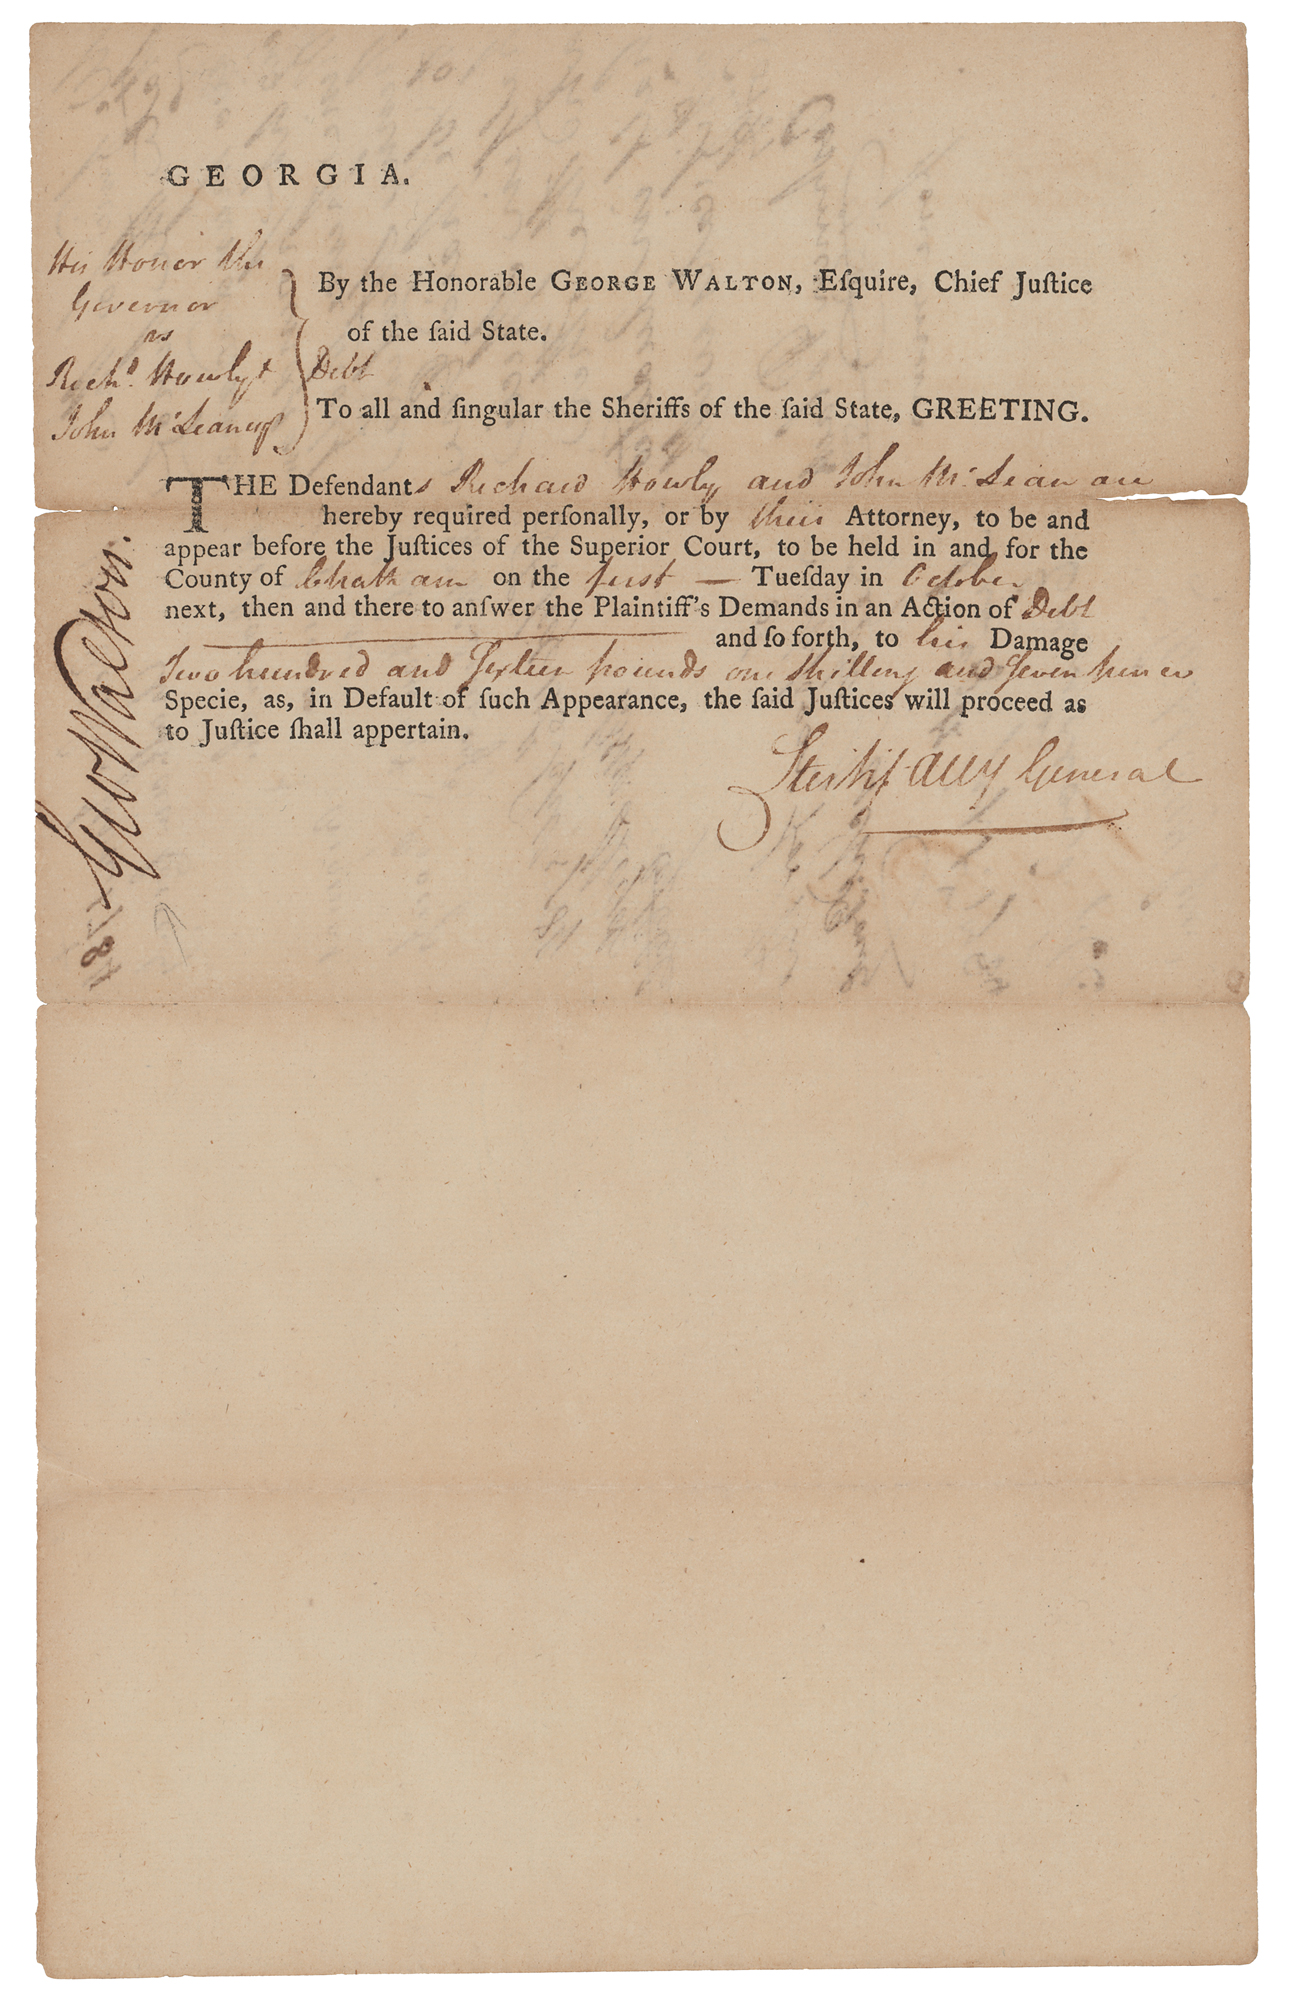 GEORGIA.
His Honor the
Governor
vs
Richd. Howly &
John McLean esqs
Debt
By the Honorable GEORGE WALTON, Eſquire, Chief Juſtice
of the ſaid State.
To all and ſingular the Sheriffs of the ſaid State, GREETING.
THE Defendants Richard Howly and John McLean are
hereby required perſonally, or by their Attorney, to be and
appear before the Juſtices of the Superior Court, to be held in and for the
County of Chatham on the first — Tueſday in October
next, then and there to anſwer the Plaintiff's Demands in an Action of Debt
and ſo forth, to his Damage
Two hundred and Sixteen pounds one Shilling and Seven pence
Specie, as, in Default of ſuch Appearance, the ſaid Juſtices will proceed as
to Juſtice ſhall appertain.
Atty General
Geo Walton.